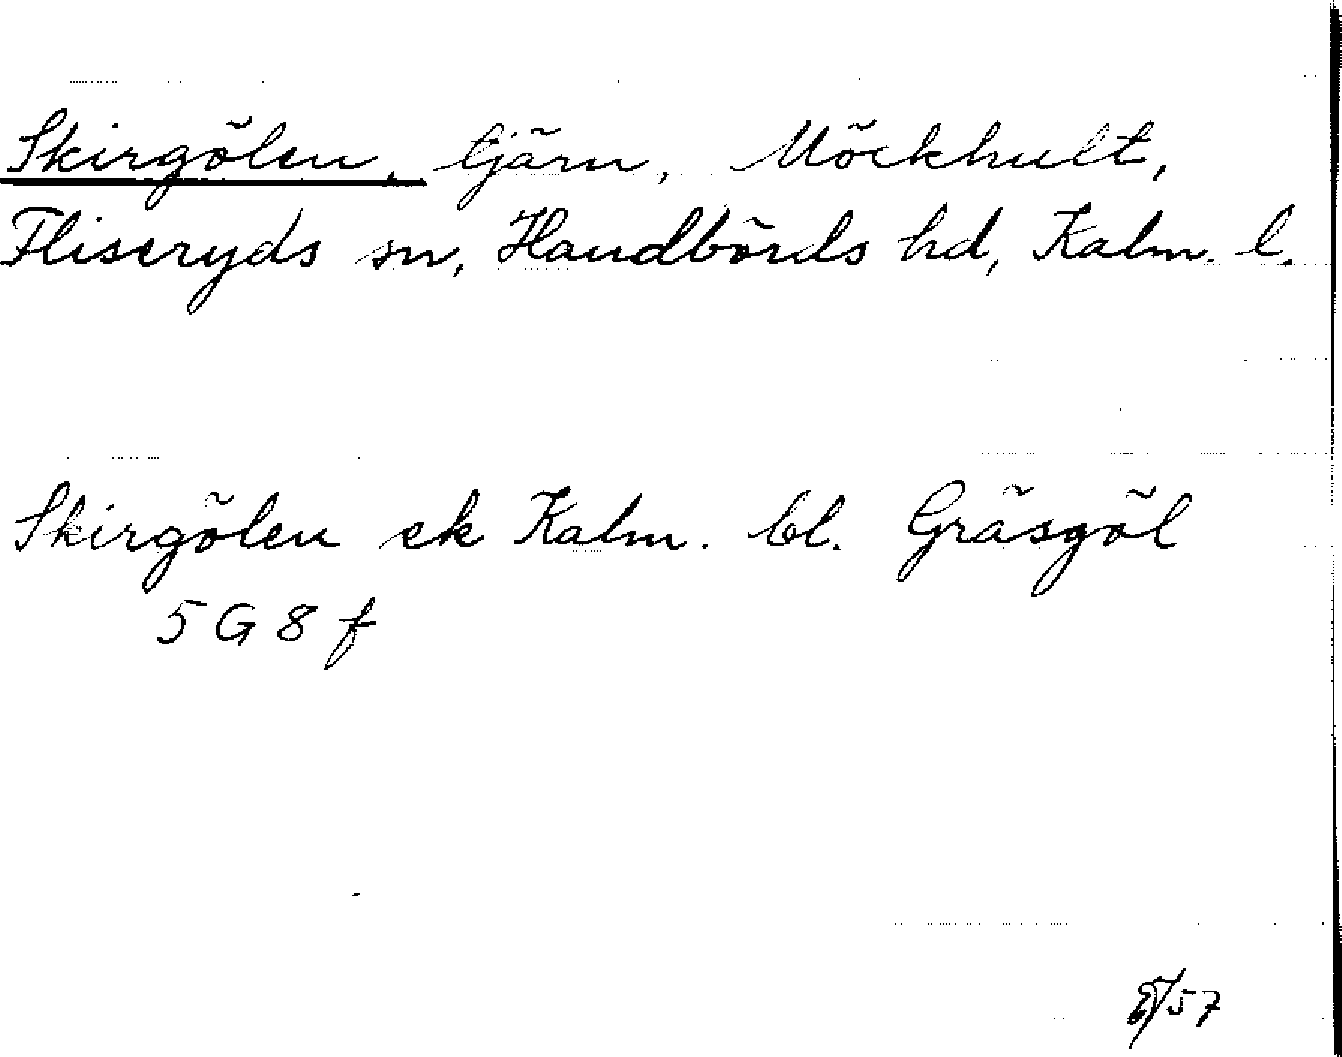 Skirgölen, tjärn, Möckhult,
Fliseryds sn, Handbörds hd, Kalm. l.
Skirgölen ek Kalm. bl. Gräsgöl
5 G 8 f
57